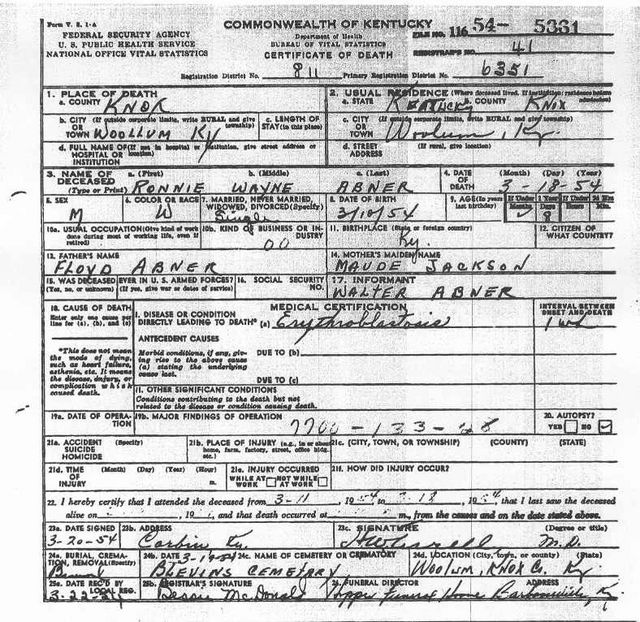 Form V. S. 1-A
COMMONWEALTH OF KENTUCKY
FILE NO. 116 54- 5331
FEDERAL SECURITY AGENCY
U. S. PUBLIC HEALTH SERVICE
NATIONAL OFFICE VITAL STATISTICS
Department of Health
BUREAU OF VITAL STATISTICS
CERTIFICATE OF DEATH
REGISTRAR'S NO. 41
Registration District No. 811 Primary Registration District No. 6351
1. PLACE OF DEATH
a. COUNTY KNOX
2. USUAL RESIDENCE (Where deceased lived. If institution: residence before admission)
a. STATE Kentucky b. COUNTY Knox
b. CITY (If outside corporate limits, write RURAL and give township)
OR TOWN WOOLLUM KY
c. LENGTH OF STAY (in this place)
c. CITY (If outside corporate limits, write RURAL and give township)
OR TOWN Woolum, Ky.
d. FULL NAME OF (If not in hospital or institution, give street address or location)
HOSPITAL OR INSTITUTION
d. STREET ADDRESS (If rural, give location)
3. NAME OF DECEASED (Type or Print)
a. (First) b. (Middle) c. (Last)
RONNIE WAYNE ABNER
4. DATE OF DEATH (Month) (Day) (Year)
3-18-54
5. SEX
M
6. COLOR OR RACE
W
7. MARRIED, NEVER MARRIED, WIDOWED, DIVORCED (Specify)
Single
8. DATE OF BIRTH
3/10/54
9. AGE (In years last birthday) If Under 1 Year Months Days If Under 24 Hrs. Hours Min.
8
10a. USUAL OCCUPATION (Give kind of work done during most of working life, even if retired)
10b. KIND OF BUSINESS OR INDUSTRY
00
11. BIRTHPLACE (State or foreign country)
Ky.
12. CITIZEN OF WHAT COUNTRY?
13. FATHER'S NAME
FLOYD ABNER
14. MOTHER'S MAIDEN NAME
MAUDE JACKSON
15. WAS DECEASED EVER IN U. S. ARMED FORCES?
(Yes, no, or unknown) (If yes, give war or dates of service)
16. SOCIAL SECURITY NO.
17. INFORMANT
WALTER ABNER
18. CAUSE OF DEATH
Enter only one cause per line for (a), (b), and (c)
MEDICAL CERTIFICATION
INTERVAL BETWEEN ONSET AND DEATH
I. DISEASE OR CONDITION
DIRECTLY LEADING TO DEATH* (a) Erythroblastosis
1 wk
*This does not mean the mode of dying, such as heart failure, asthenia, etc. It means the disease, injury, or complication which caused death.
ANTECEDENT CAUSES
Morbid conditions, if any, giving rise to the above cause (a) stating the underlying cause last.
DUE TO (b)
DUE TO (c)
II. OTHER SIGNIFICANT CONDITIONS
Conditions contributing to the death but not related to the disease or condition causing death.
19a. DATE OF OPERATION
19b. MAJOR FINDINGS OF OPERATION
7700-133-28
20. AUTOPSY?
YES NO
21a. ACCIDENT SUICIDE HOMICIDE (Specify)
21b. PLACE OF INJURY (e.g., in or about home, farm, factory, street, office bldg. etc.)
21c. (CITY, TOWN, OR TOWNSHIP) (COUNTY) (STATE)
21d. TIME OF INJURY (Month) (Day) (Year) (Hour)
m.
21e. INJURY OCCURRED
WHILE AT WORK NOT WHILE AT WORK
21f. HOW DID INJURY OCCUR?
22. I hereby certify that I attended the deceased from 3-11, 1954 to 3-18, 1954, that I last saw the deceased
alive on , 19 , and that death occurred at m., from the causes and on the date stated above.
23a. DATE SIGNED
3-20-54
23b. ADDRESS
Corbin Ky.
23c. SIGNATURE (Degree or title)
M.D.
24a. BURIAL, CREMATION, REMOVAL (Specify)
Burial
24b. DATE
24c. NAME OF CEMETERY OR CREMATORY
BLEVINS CEMETARY
24d. LOCATION (City, town, or county) (State)
WOOLUM, KNOX Co. Ky.
25a. DATE REC'D BY LOCAL REG.
3-22-54
25b. REGISTRAR'S SIGNATURE
Bessie McDonald
26. FUNERAL DIRECTOR ADDRESS
Hopper Funeral Home Barbourville, Ky.